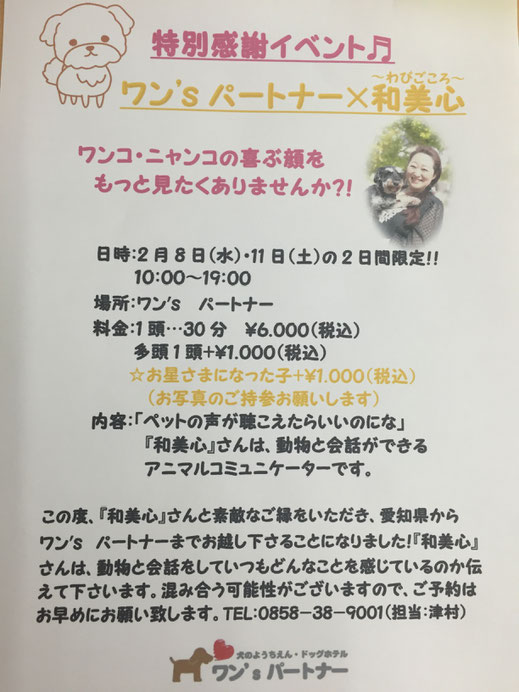 特別感謝イベント♬
～わびごころ～
ワン's パートナー×和美心
ワンコ・ニャンコの喜ぶ顔を
もっと見たくありませんか?!
日時:2月8日(水)・11日(土)の2日間限定!!
10:00～19:00
場所:ワン's パートナー
料金:1頭…30分 ¥6.000(税込)
多頭1頭+¥1.000(税込)
☆お星さまになった子+¥1.000(税込)
(お写真のご持参お願いします)
内容:「ペットの声が聴こえたらいいのにな」
『和美心』さんは、動物と会話ができる
アニマルコミュニケーターです。
この度、『和美心』さんと素敵なご縁をいただき、愛知県から
ワン's パートナーまでお越し下さることになりました!『和美心』
さんは、動物と会話をしていつもどんなことを感じているのか伝
えて下さいます。混み合う可能性がございますので、ご予約は
お早めにお願い致します。TEL:0858-38-9001(担当:津村)
犬のようちえん・ドッグホテル
ワン's パートナー